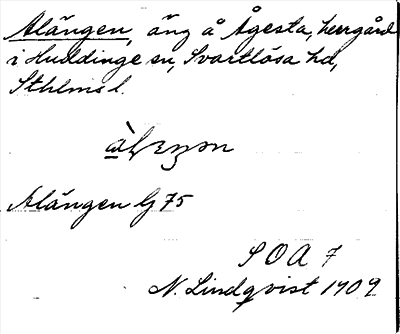 Alängen, äng å Ågesta, herrgård
i Huddinge sn, Svartlösa hd,
Sthlms l.
Alängen G 75
SOA 7
N. Lindqvist 1909